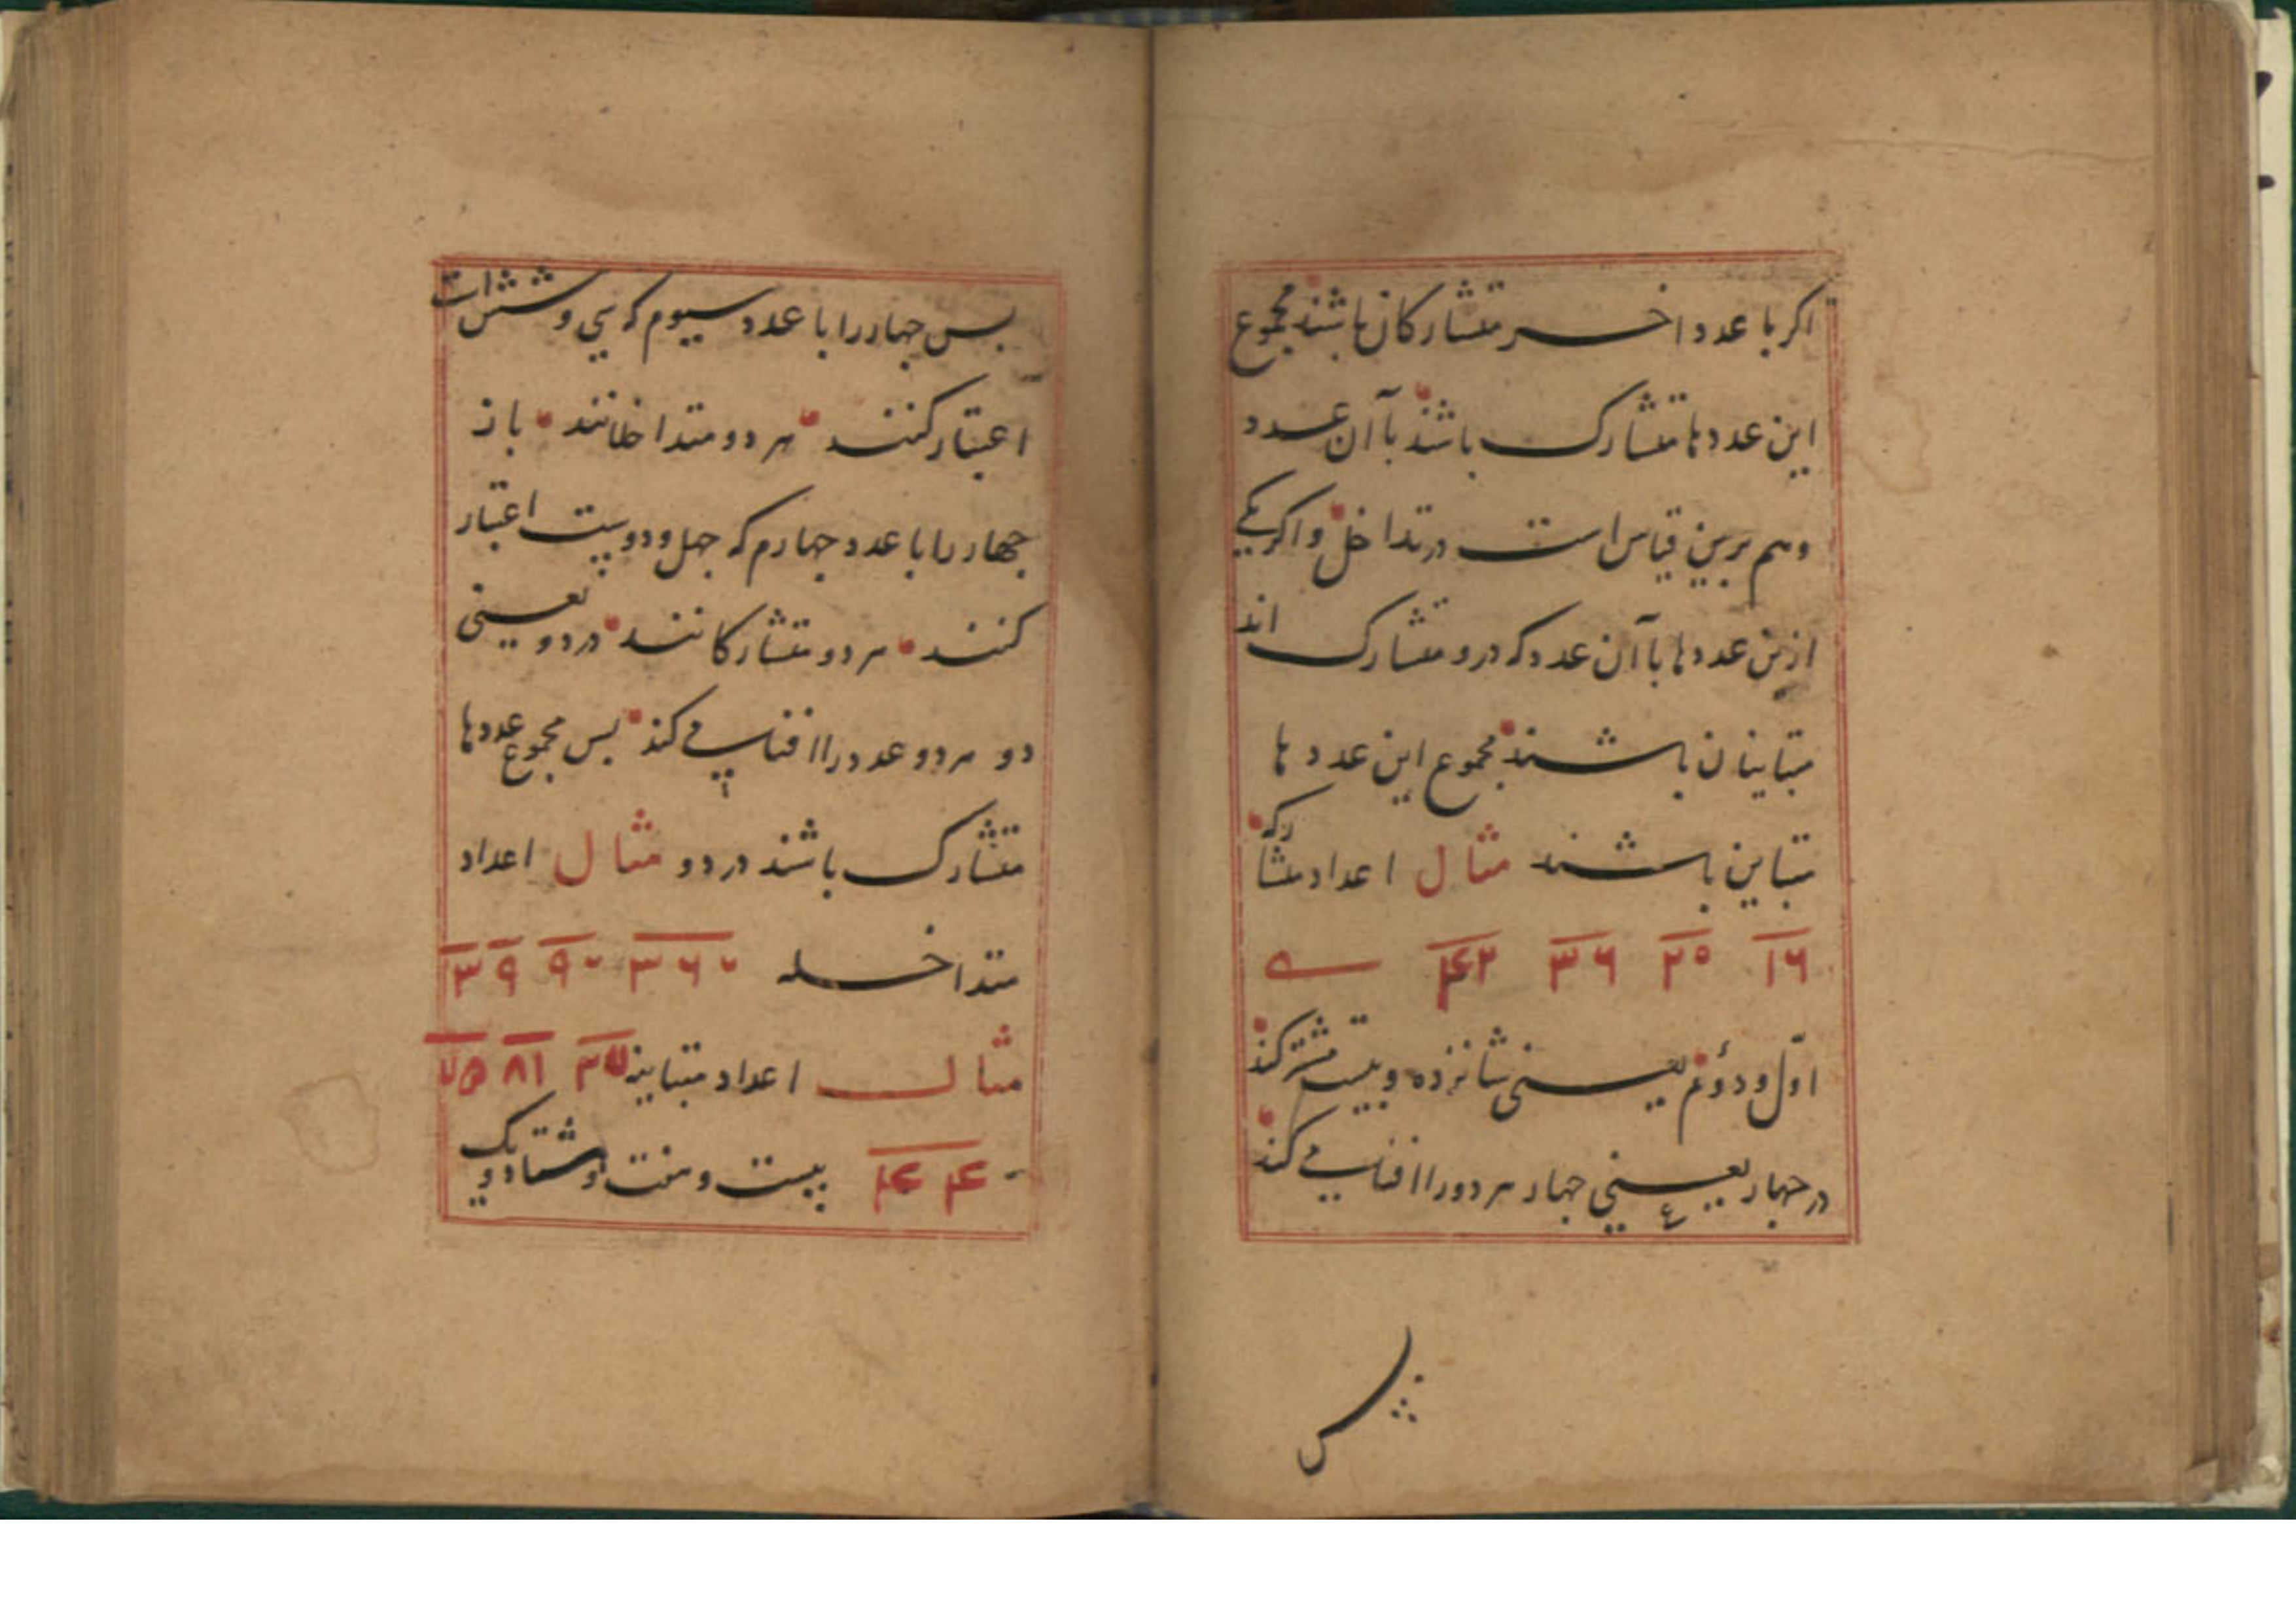 اکر با عدد اخر متشارکان باشند مجموع
این عددها متشارک باشند با آن عدد
وهم برین قیاس است در تداخل واکر یکی
ازین عددها با آن عدد که درو متشارک اند
متباینان باشند مجموع این عدد ها
متباین باشند مثال اعداد متشارکه
۱۶ ۲۰ ۳۶ ۴۲
اوّل ودوئم یعنی شانزده وبیست مشترکند
در چهار یعنی جهار هر دورا افنا می کند
پس
بس جهار را با عدد سیوم که سی وشش است
اعتبار کنند هر دو متداخلانند باز
جهار را با عدد جهارم که جهل ودو یست اعتبار
کنند هر دو متشارکانند در دو یعنی
دو هر دو عدد را افنا می کند بس مجموع عددها
متشارک باشند در دو مثال اعداد
متداخله ۳۶۰ ۹۰ ۹ ۳
مثال اعداد متباینه ۲۷ ۸۱
۴۴ بیست وهفت وهشتاد ویک